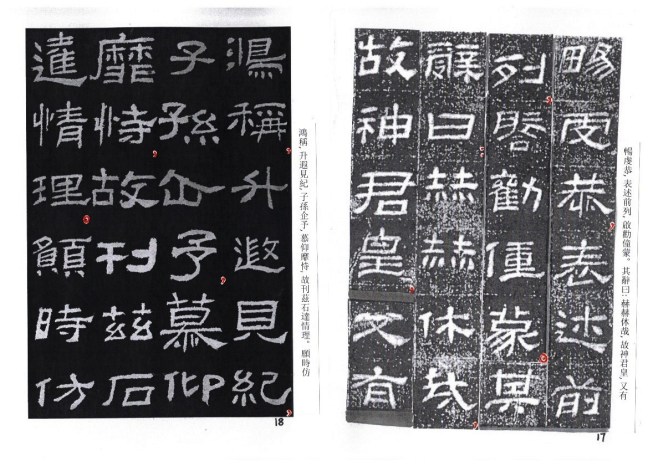 暢虔恭,表述前列,啟勸僮蒙。其辭曰:赫赫休哉,故神君皇,又有
暢虔恭表述前
列啓勸僮蒙其
辭曰赫赫休哉
故神君皇又有
17
鴻稱,升遐見紀,子孫企予,慕仰摩恃,故刊茲石達情理。願時仿
鴻稱升遐見紀
子孫企予慕仰
靡恃故刊茲石
達情理願時仿
18